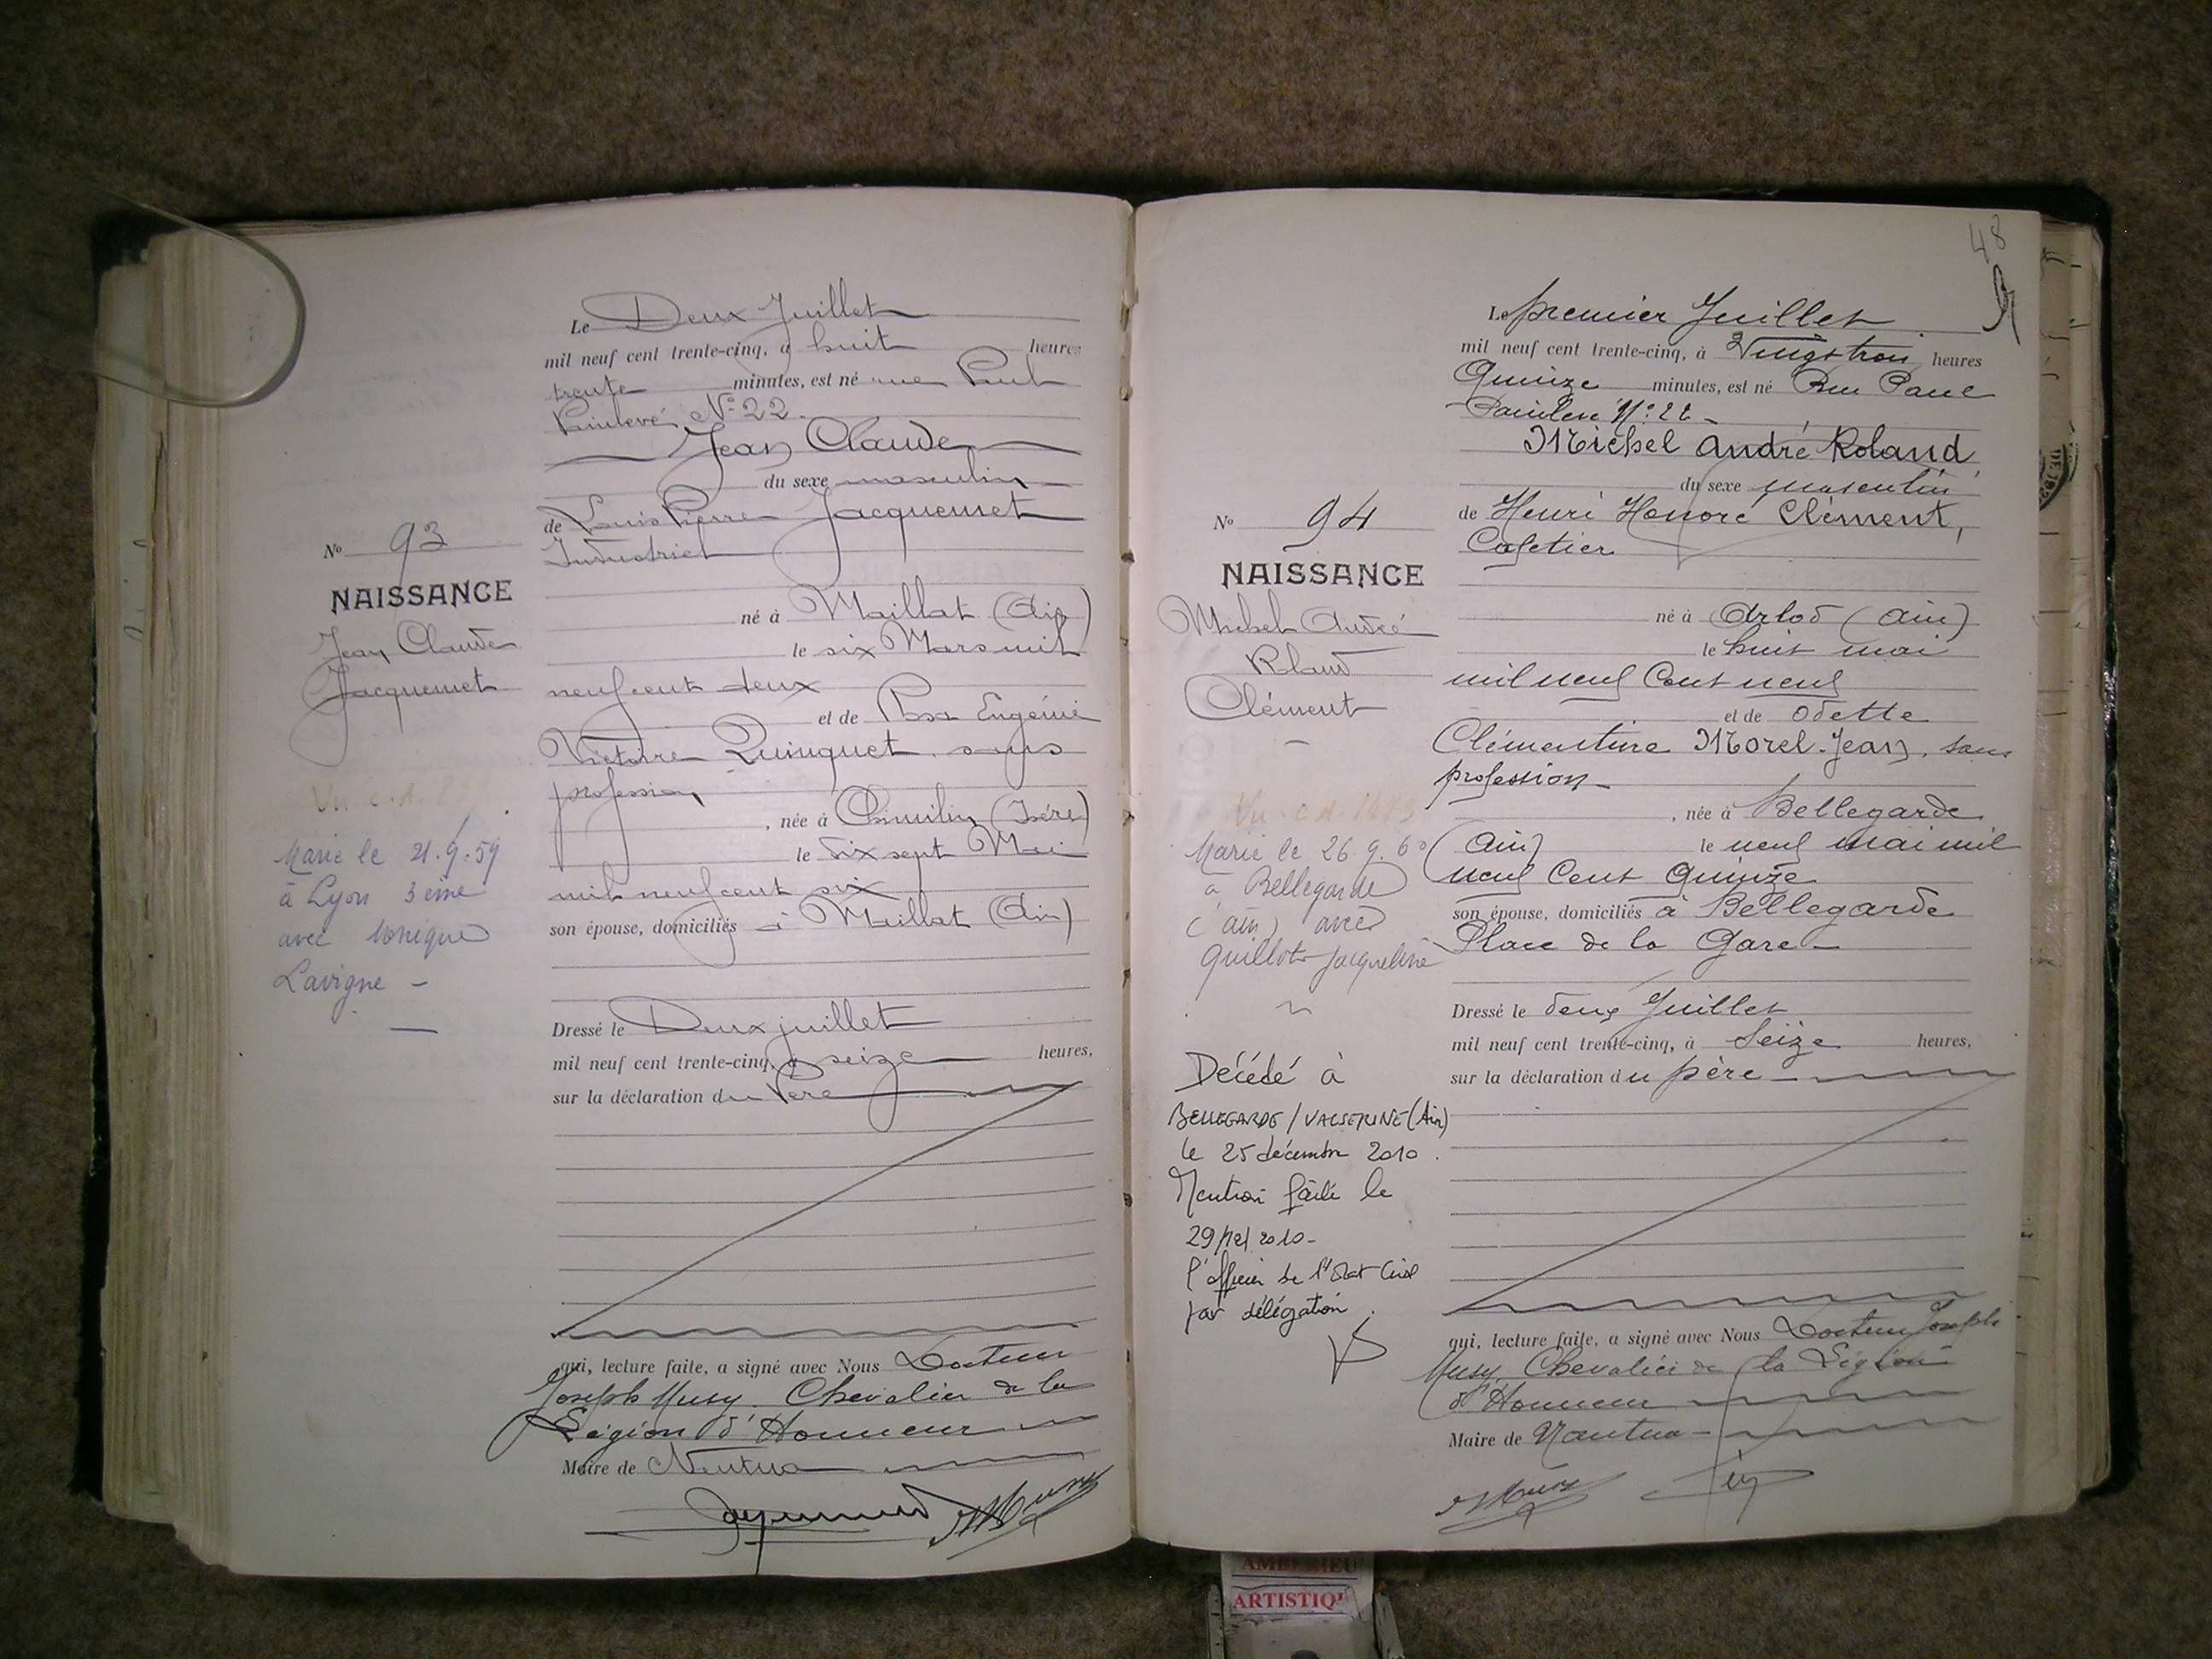 Le Deux Juillet
mil neuf cent trente-cinq, à huit heures
trente minutes, est né rue Paul
Painlevé N° 22.
Jean Claude
du sexe masculin
de Louis Pierre Jacquemet
Industriel
né à Maillat (Ain)
le six Mars mil
neuf cent deux
et de Rosa Eugénie
Victoire Quinquet sans
profession
, née à Chimilin (Isère)
le dix sept Mai
mil neuf cent six
son épouse, domiciliés à Maillat (Ain)
Dressé le Deux juillet
mil neuf cent trente-cinq, à seize heures,
sur la déclaration du Père
qui, lecture faite, a signé avec Nous Docteur
Joseph Musy. Chevalier de la
Légion d'Honneur
Maire de Nantua
N° 93
NAISSANCE
Jean Claude
Jacquemet
Vu c.d.
Marié le 21.9.59
à Lyon 3ème
avec Monique
Lavigne -
48
Le premier Juillet
mil neuf cent trente-cinq, à Vingt trois heures
Quinze minutes, est né Rue Paul
Painlevé N° 22 -
Michel André Roland
du sexe masculin
de Henri Honoré Clément,
Cafetier
né à Arlod (Ain)
le huit mai
mil neuf Cent neuf
et de Odette
Clémentine Morel-Jean, sans
profession
, née à Bellegarde
(Ain) le neuf mai mil
neuf Cent Quinze
son épouse, domiciliés à Bellegarde
Place de la Gare -
Dressé le deux Juillet
mil neuf cent trente-cinq, à Seize heures,
sur la déclaration du père
qui, lecture faite, a signé avec Nous Docteur Joseph
Musy, Chevalier de la Légion
d'Honneur
Maire de Nantua
N° 94
NAISSANCE
Michel André
Roland
Clément
Vu c.d.
Marié le 26.9.60
à Bellegarde
(ain) avec
Guillot Jacqueline
Décédé à
BELLEGARDE/VALSERINE (Ain)
le 25 décembre 2010.
Mention faite le
29/12/2010-
l'officier de l'état Civil
par délégation.
AMBERIEU
ARTISTIQU